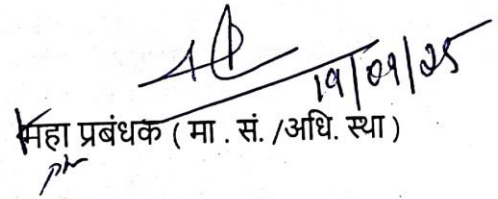 19/09/25
महा प्रबंधक ( मा . सं. /अधि. स्था )